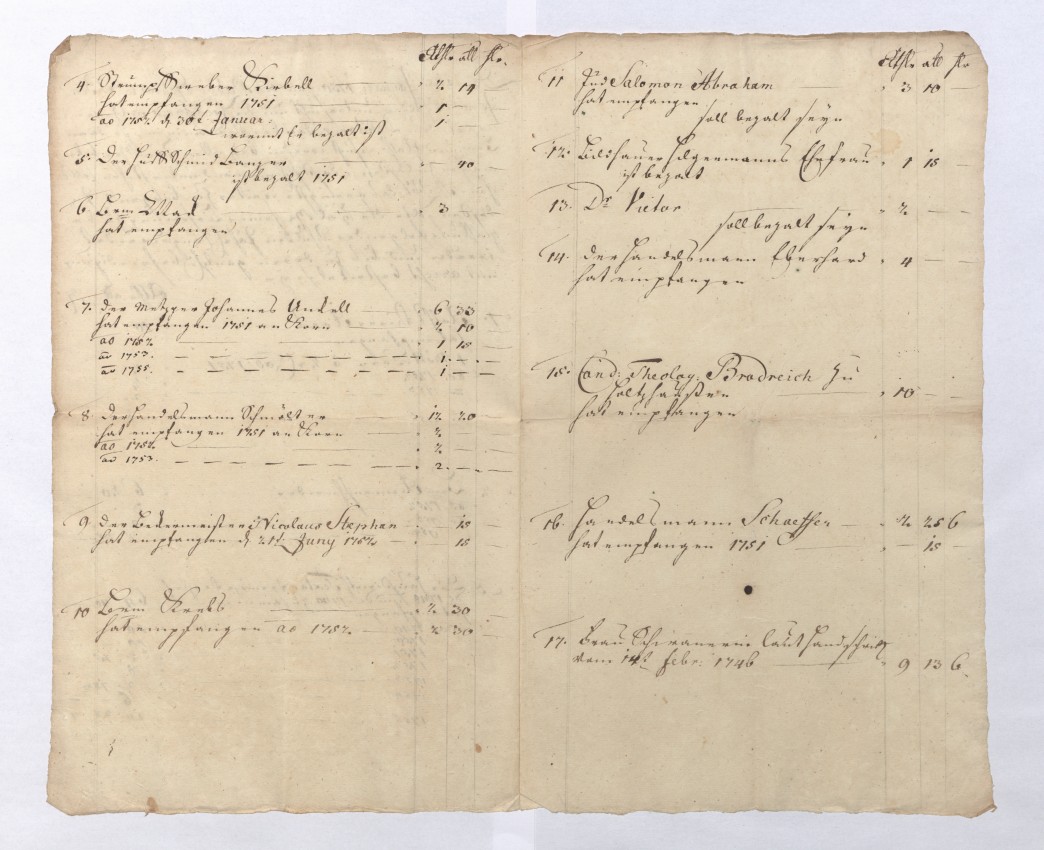 Rthlr alb hlr.
4. Strumpfweber Kirbell — 2 14 —
hat empfangen 1751 — 1 — —
ao 1752 d 30t Januar: 1 — —
womit Er bezalt ist
5. Der Huff Schmid Banger — — 40 —
ist bezalt 1751
6. — 3 — —
hat empfangen
7. der Metzger Johannes Unckell — 6 33
hat empfangen 1751 an Korn — 2 10
ao 1752 — 1 15 —
ao 1753. — 1 — —
ao 1755. — 1 — —
8. der Handelsmann — 12 20
hat empfangen 1751 an Korn — 2 — —
ao 1752 — 2 — —
ao 1753 — 2 — —
9. der Beckermeister Nicolaus Stephan — — 15 —
hat empfangen d 21t Juny 1752 — — 15 —
10. Krebs — 2 30 —
hat empfangen ao 1752 — 2 30 —
Rthlr alb hlr
11. Jud Salomon Abraham — 3 10 —
hat empfangen
soll bezalt seyn
12. Bildhauer Hegermanns Ehefrau 1 15
ist bezalt
13. Dr Vietor — 2 — —
soll bezalt seyn
14. der Handelsmann Eberhard 4 — —
hat empfangen
15. Cand: Theolog: Brodreich zu
Holtzhaußen — 10 — —
hat empfangen
16. Handelsmann Schaeffer — 2 25 6
hat empfangen 1751 — — 15 —
17. Frau laut Handschrift
vom 14t Febr: 1746 — 9 13 6.